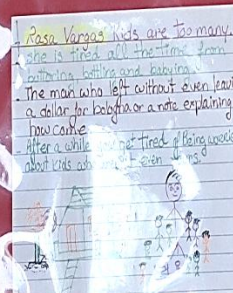 Rosa Vargas kids are too many.
she is tired all the time from
buttoning, bottling and babying.
- The man who left without even leavi
a dollar for bologna or a note explaining
how come
- After a while you get tired of Being worried
about kids who even